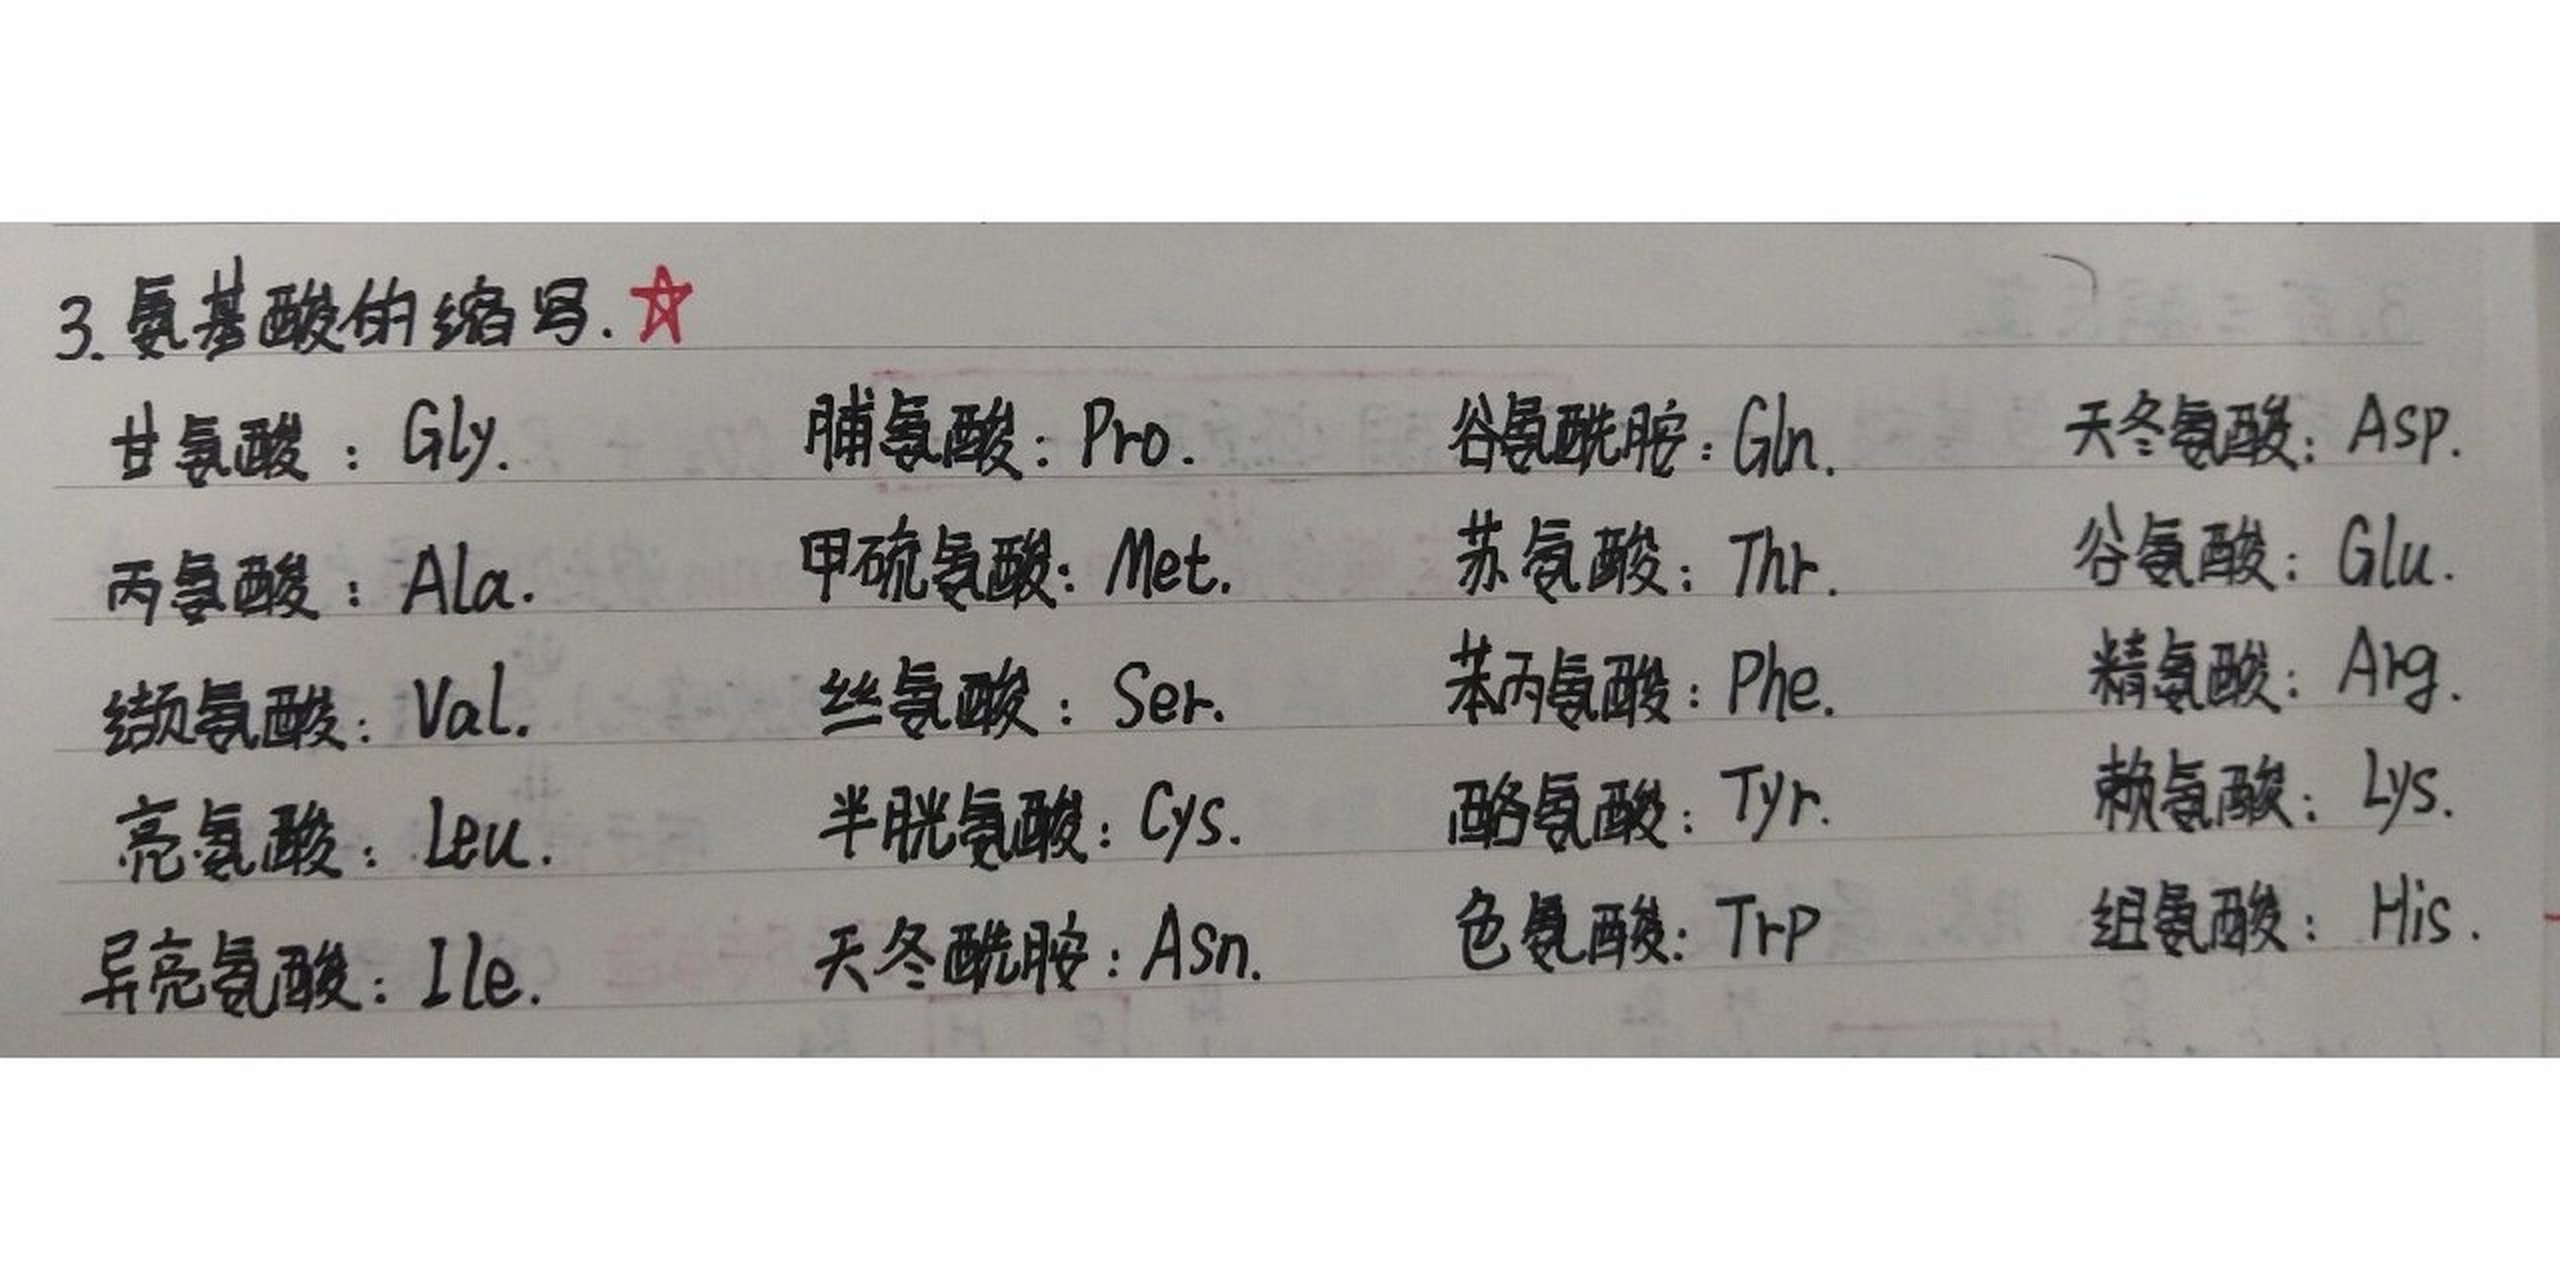 3. 氨基酸的缩写. ☆
甘氨酸 : Gly. 脯氨酸 : Pro. 谷氨酰胺 : Gln. 天冬氨酸 : Asp.
丙氨酸 : Ala. 甲硫氨酸 : Met. 苏氨酸 : Thr. 谷氨酸 : Glu.
缬氨酸 : Val. 丝氨酸 : Ser. 苯丙氨酸 : Phe. 精氨酸 : Arg.
亮氨酸 : Leu. 半胱氨酸 : Cys. 酪氨酸 : Tyr. 赖氨酸 : Lys.
异亮氨酸 : Ile. 天冬酰胺 : Asn. 色氨酸 : Trp 组氨酸 : His.